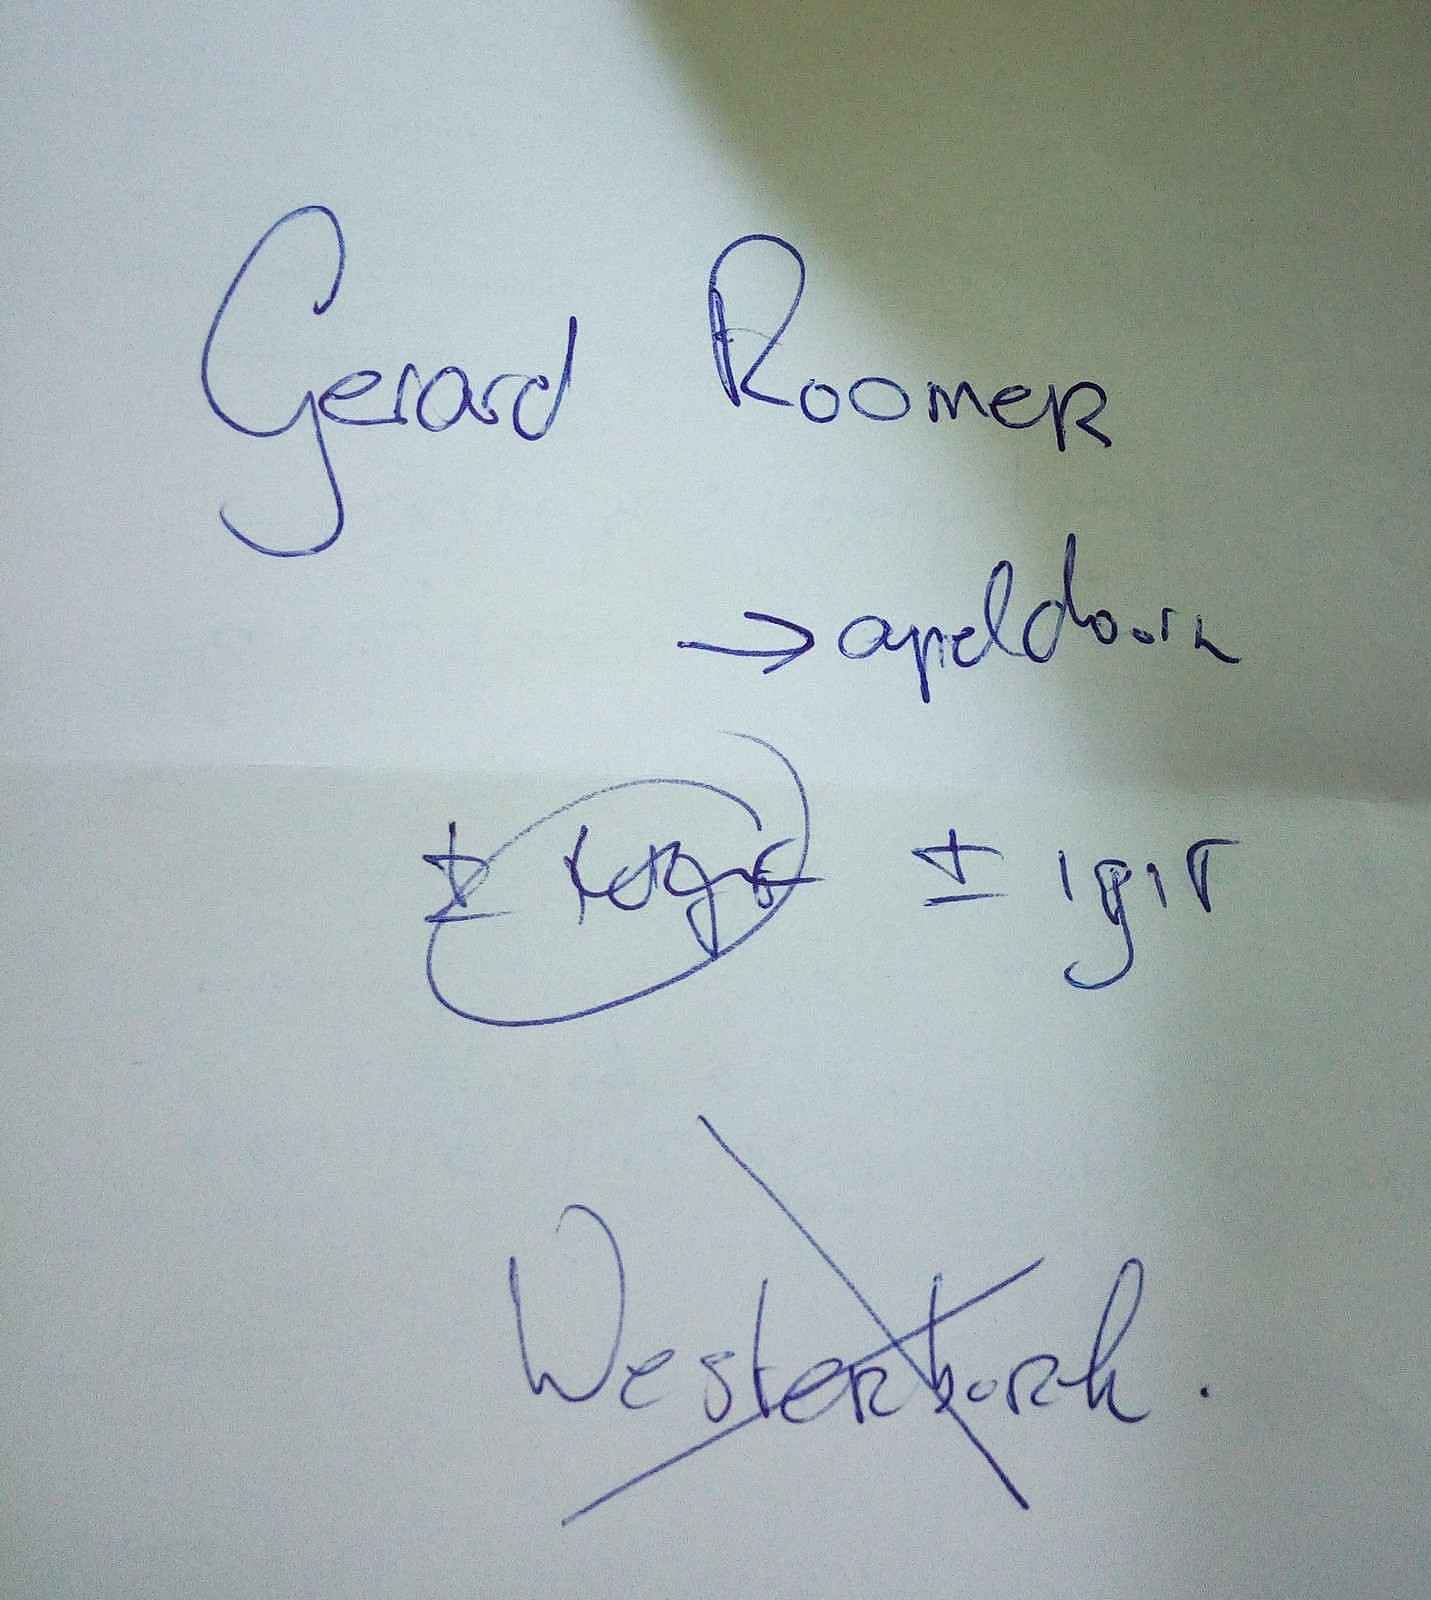 Gerard Roomer
→ apeldoorn
± ± 1915
Westerbork.